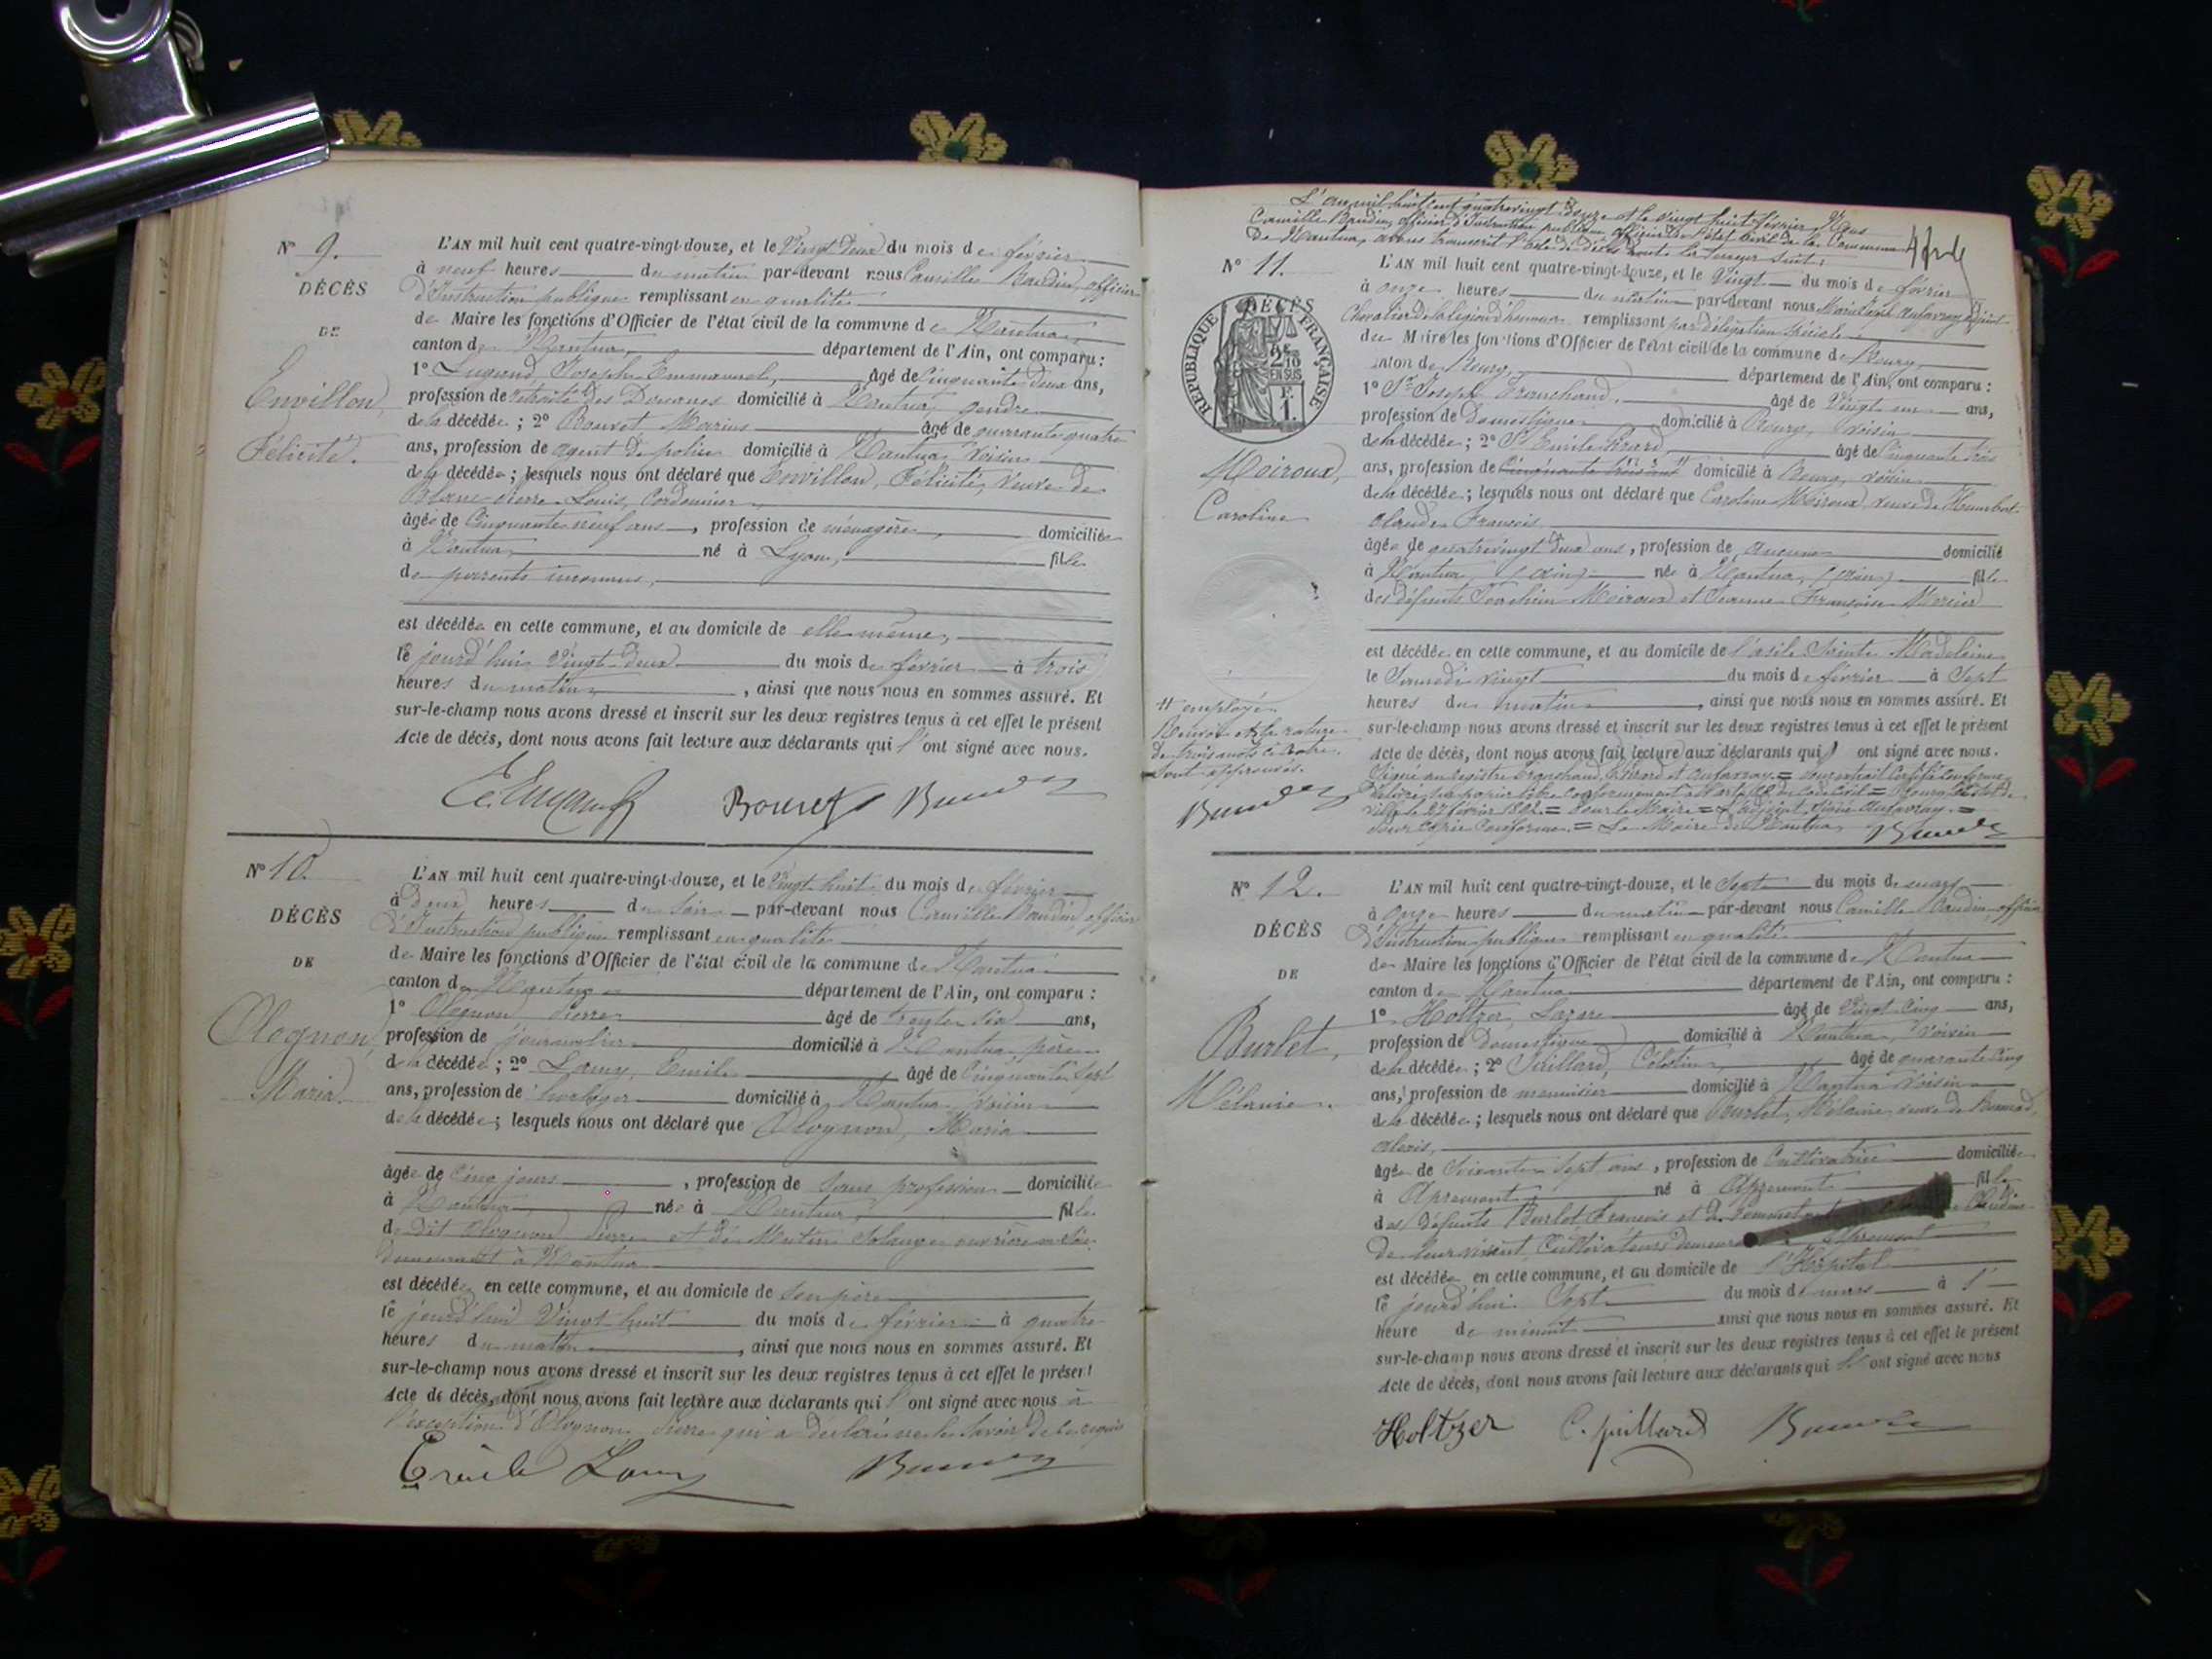 N° 9.
DÉCÈS
DE
Envillon,
Félicité.
L'AN mil huit cent quatre-vingt-douze, et le Vingt deux du mois de février
à neuf heures du matin par-devant nous Camille Baudin, officier
d'Instruction publique remplissant en qualité
de Maire les fonctions d'Officier de l'état civil de la commune de Nantua,
canton de Nantua, département de l'Ain, ont comparu :
1° Lugand Joseph Emmanuel, âgé de Cinquante deux ans,
profession de retraité des Douanes domicilié à Nantua, gendre
de la décédée ; 2° Bouvet Marius âgé de quarante quatre
ans, profession de agent de police domicilié à Nantua, voisin
de la décédée ; lesquels nous ont déclaré que Envillon, Félicité, veuve de
Blanc Pierre Louis, Cordonnier
âgée de Cinquante neuf ans, profession de ménagère, domiciliée
à Nantua, né à Lyon, fille
de parents inconnus,
est décédée en cette commune, et au domicile de elle même,
le jourd'hui Vingt deux du mois de février à trois
heures du matin, ainsi que nous nous en sommes assuré. Et
sur-le-champ nous avons dressé et inscrit sur les deux registres tenus à cet effet le présent
Acte de décès, dont nous avons fait lecture aux déclarants qui l'ont signé avec nous.
Bouvet
N° 10.
DÉCÈS
DE
Olognon,
Maria.
L'AN mil huit cent quatre-vingt-douze, et le Vingt huit du mois de février
à Deux heures du soir par-devant nous Camille Baudin, officier
d'Instruction publique remplissant en qualité
de Maire les fonctions d'Officier de l'état civil de la commune de Nantua
canton de Nantua département de l'Ain, ont comparu :
1° Olognon Pierre âgé de Trente six ans,
profession de journalier domicilié à Nantua, père
de la décédée ; 2° Lamy, Emile âgé de Cinquante sept
ans, profession de horloger domicilié à Nantua, voisin
de la décédée ; lesquels nous ont déclaré que Olognon, Maria
âgée de Cinq jours, profession de sans profession domiciliée
à Nantua, née à Nantua, fille
de Dit Olognon Pierre et de Martin Solange ouvrière en soie
demeurant à Nantua
est décédée en cette commune, et au domicile de son père
le jourd'hui Vingt huit du mois de février à quatre
heures du matin, ainsi que nous nous en sommes assuré. Et
sur-le-champ nous avons dressé et inscrit sur les deux registres tenus à cet effet le présent
Acte de décès, dont nous avons fait lecture aux déclarants qui l'ont signé avec nous à
l'exception d'Olognon Pierre qui a déclaré ne le savoir de ce requis
Emile Lamy
L'an mil huit cent quatre vingt douze et le vingt huit février Nous
Camille Baudin, officier d'Instruction publique officier de l'état civil de la Commune
de Nantua, avons transcrit l'acte de décès dont la teneur suit :
N° 11.
DÉCÈS
RÉPUBLIQUE FRANÇAISE
2/10
EN SUS
F.
1.
Moiroux,
Caroline
L'AN mil huit cent quatre-vingt-douze, et le Vingt du mois de février
à onze heures du matin par-devant nous adjoint
Chevalier de la légion d'honneur remplissant par délégation spéciale
du Maire les fonctions d'Officier de l'état civil de la commune de Bourg,
canton de Bourg, département de l'Ain, ont comparu :
1° Sr Joseph Branchand, âgé de Vingt un ans,
profession de Domestique domicilié à Bourg, Voisin
de la décédée ; 2° Sr Emile Pérard âgé de Cinquante trois
ans, profession de Cinquante trois ans domicilié à Bourg, voisin
de la décédée ; lesquels nous ont déclaré que Caroline Moiroux veuve de Humbert
Claude François
âgée de quatre vingt deux ans, profession de aucune domicilié
à Nantua, (Ain) née à Nantua, (Ain) fille
des défunts Joachim Moiroux et Jeanne Françoise Mercier
est décédée en cette commune, et au domicile de l'asile Sainte Madeleine
le Samedi vingt du mois de février à Sept
heures du matin, ainsi que nous nous en sommes assuré. Et
sur-le-champ nous avons dressé et inscrit sur les deux registres tenus à cet effet le présent
Acte de décès, dont nous avons fait lecture aux déclarants qui ont signé avec nous.
Signé au registre Branchand, Pérard et = pour extrait certifié conforme
ville le 27 février 1892 = Pour le Maire = L'adjoint, signé =
Pour copie conforme = Le Maire de Nantua
employé
Renvoi et la rature
de trois mots ci contre
sont approuvés.
N° 12.
DÉCÈS
DE
Burlet,
Mélanie.
L'AN mil huit cent quatre-vingt-douze, et le Sept du mois de mars
à onze heures du matin par-devant nous Camille Baudin officier
d'Instruction publique remplissant en qualité
de Maire les fonctions d'Officier de l'état civil de la commune de Nantua
canton de Nantua département de l'Ain, ont comparu :
1° Holtzer, Lazare âgé de Vingt Cinq ans,
profession de Domestique domicilié à Nantua, Voisin
de la décédée ; 2° Juillard, Célestin, âgé de quarante Cinq
ans, profession de menuisier domicilié à Nantua voisin
de la décédée ; lesquels nous ont déclaré que Burlet, Mélanie, veuve de
Alexis,
âgée de Soixante Sept ans, profession de Cultivatrice domiciliée
à Apremont né à Apremont fille
des défunts Burlet François et de
de leur vivant, Cultivateurs Apremont
est décédée en cette commune, et au domicile de l'Hôpital
le jourd'hui Sept du mois de mars à 1
heure de minuit ainsi que nous nous en sommes assuré. Et
sur-le-champ nous avons dressé et inscrit sur les deux registres tenus à cet effet le présent
Acte de décès, dont nous avons fait lecture aux déclarants qui ont signé avec nous
Holtzer C. Juillard